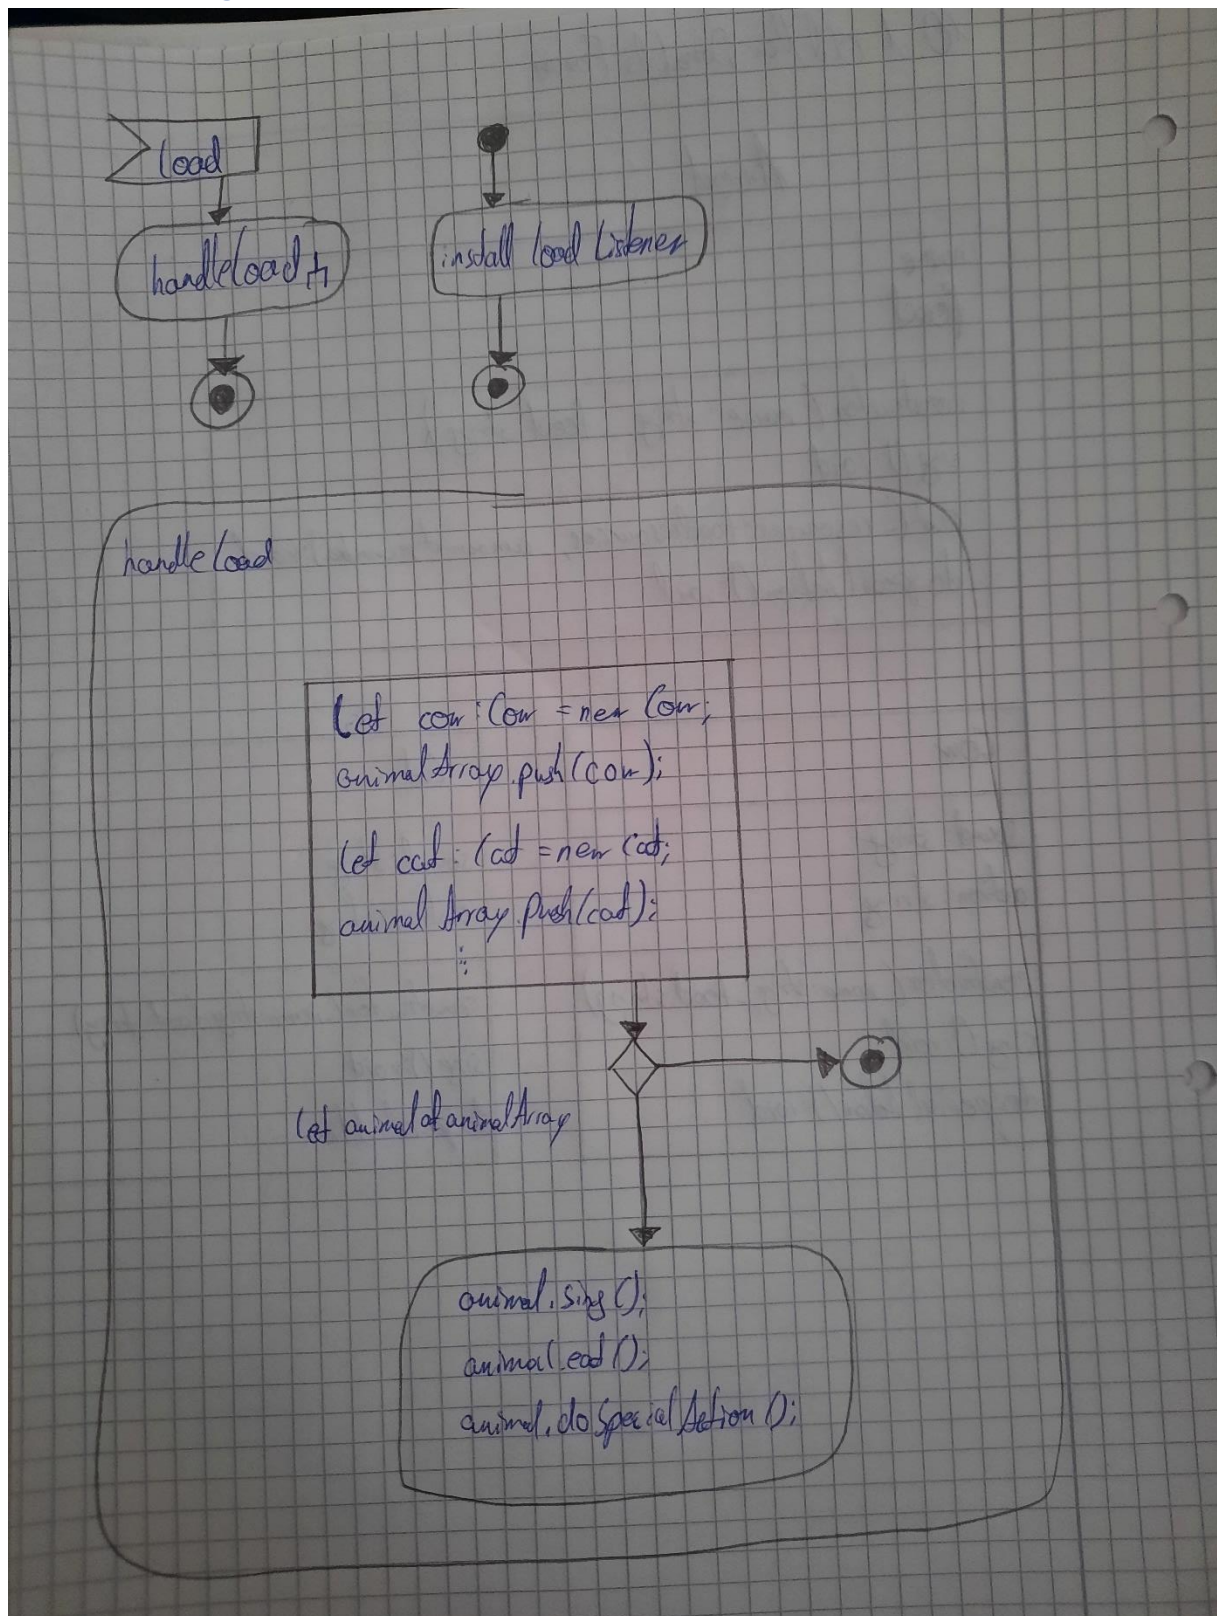 load
handleload
install load Listener
handleload
Let cow: Cow = new Cow;
animalArray.push(cow);
let cat: Cat = new Cat;
animalArray.push(cat);
let animal of animalArray
animal.sing();
animal.eat();
animal.doSpecialAction();